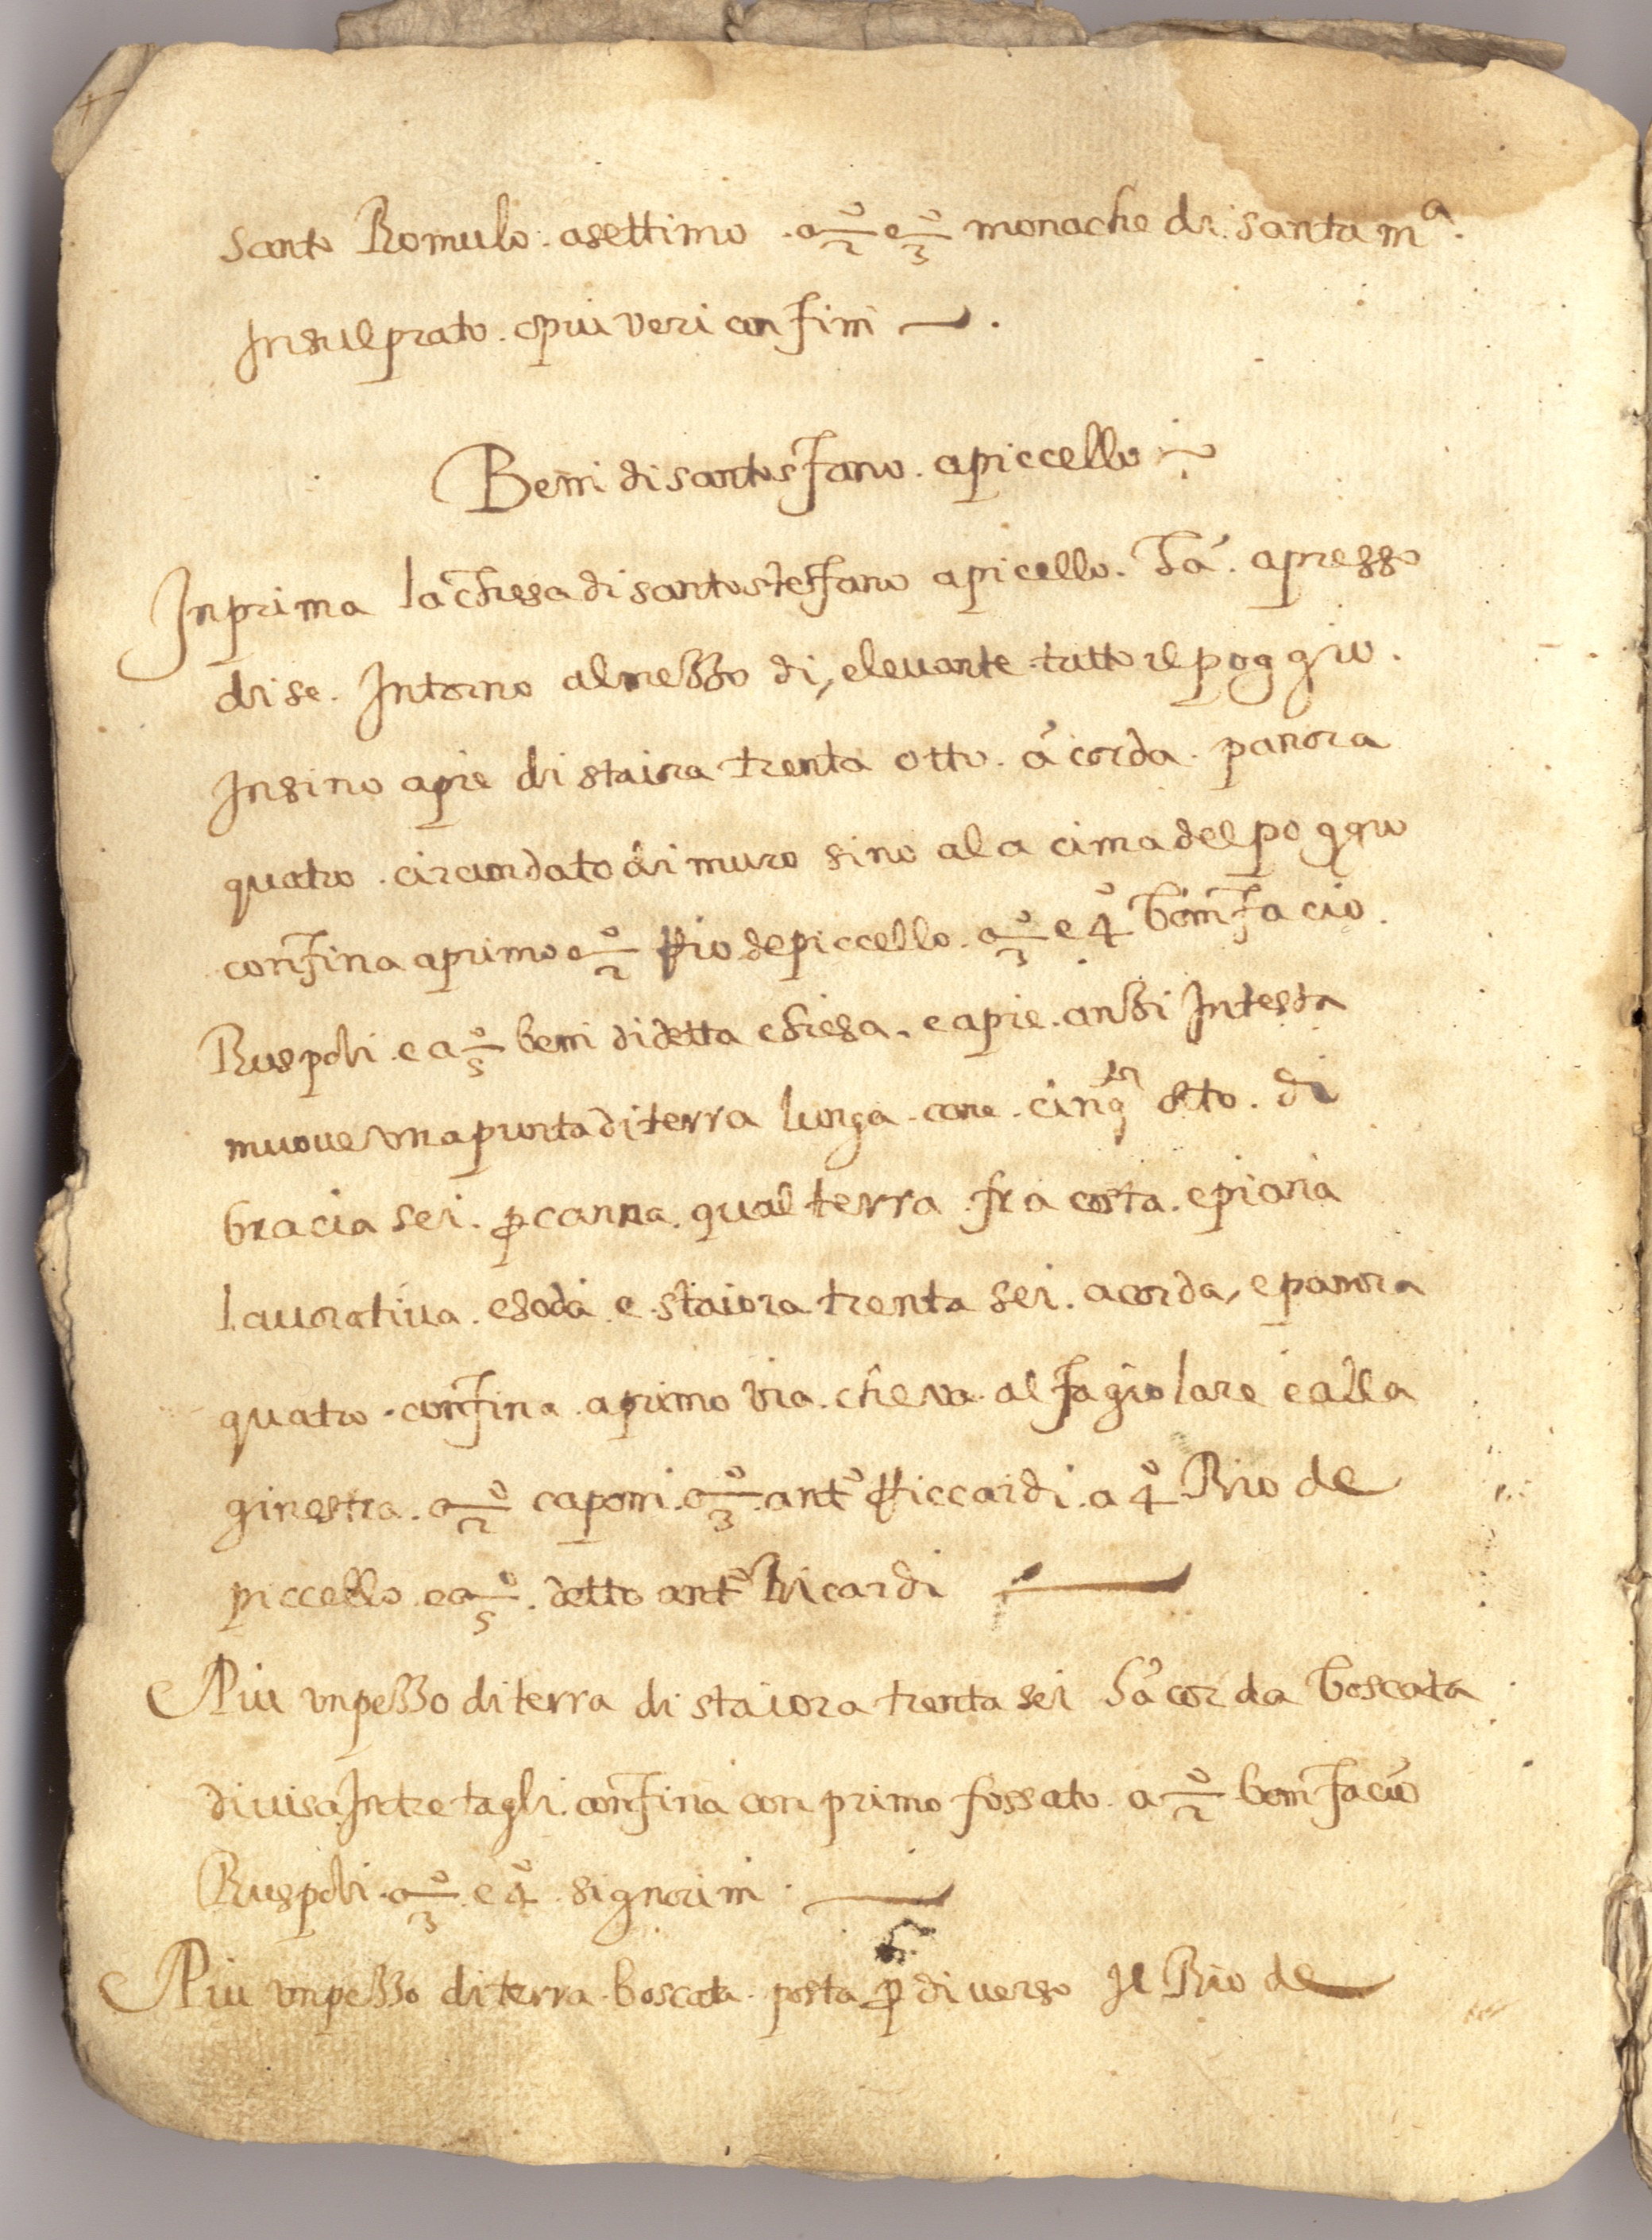 santo Romulo. asettimo. a 2º e 3º monache di santa mª.
Insulprato. epiu veri confini —.
Beni di santo sfano. apiccello
Inprima la chiesa di santo steffano apicello. Fa. apresso
di se. Intorno almezzo di, elevante tutto il poggio.
Insino apie di staiora trenta otto. a corda. panora
quatro. circundato di muro sino ala cima del poggio
confina aprimo a 2º Rio depiccello. a 3º e 4º bonifacio.
Ruspoli. e a 5º beni didetta chiesa. e apie. anzi Intesta
muove una punta di terra lunga. cane. cinq otto. di
bracia sei. p canna. qual terra. fra costa. epiana
lavorativa. esoda. e. staiora trenta sei. acorda, e panora
quatro. confina. aprimo via. che va. al fagiolare e alla
ginestra. a 2º caponi. a 3º. antº Riccardi. a 4º Rio de
piccello. e a 5º. detto antº Ricardi —
Piu unpezzo di terra di staiora trenta sei S a corda boscata
divisa Intre tagli. confina con primo fossato. a 2º bonifacio
Ruspoli. a 3º. e 4º. signorini. —
Piu unpezzo di terra. boscata. posta p di verso Il Rio de